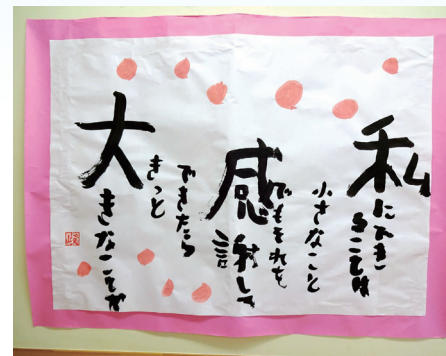 私にできることは
小さなこと
でもそれを
感謝して
できたら
きっと
大きなことだ